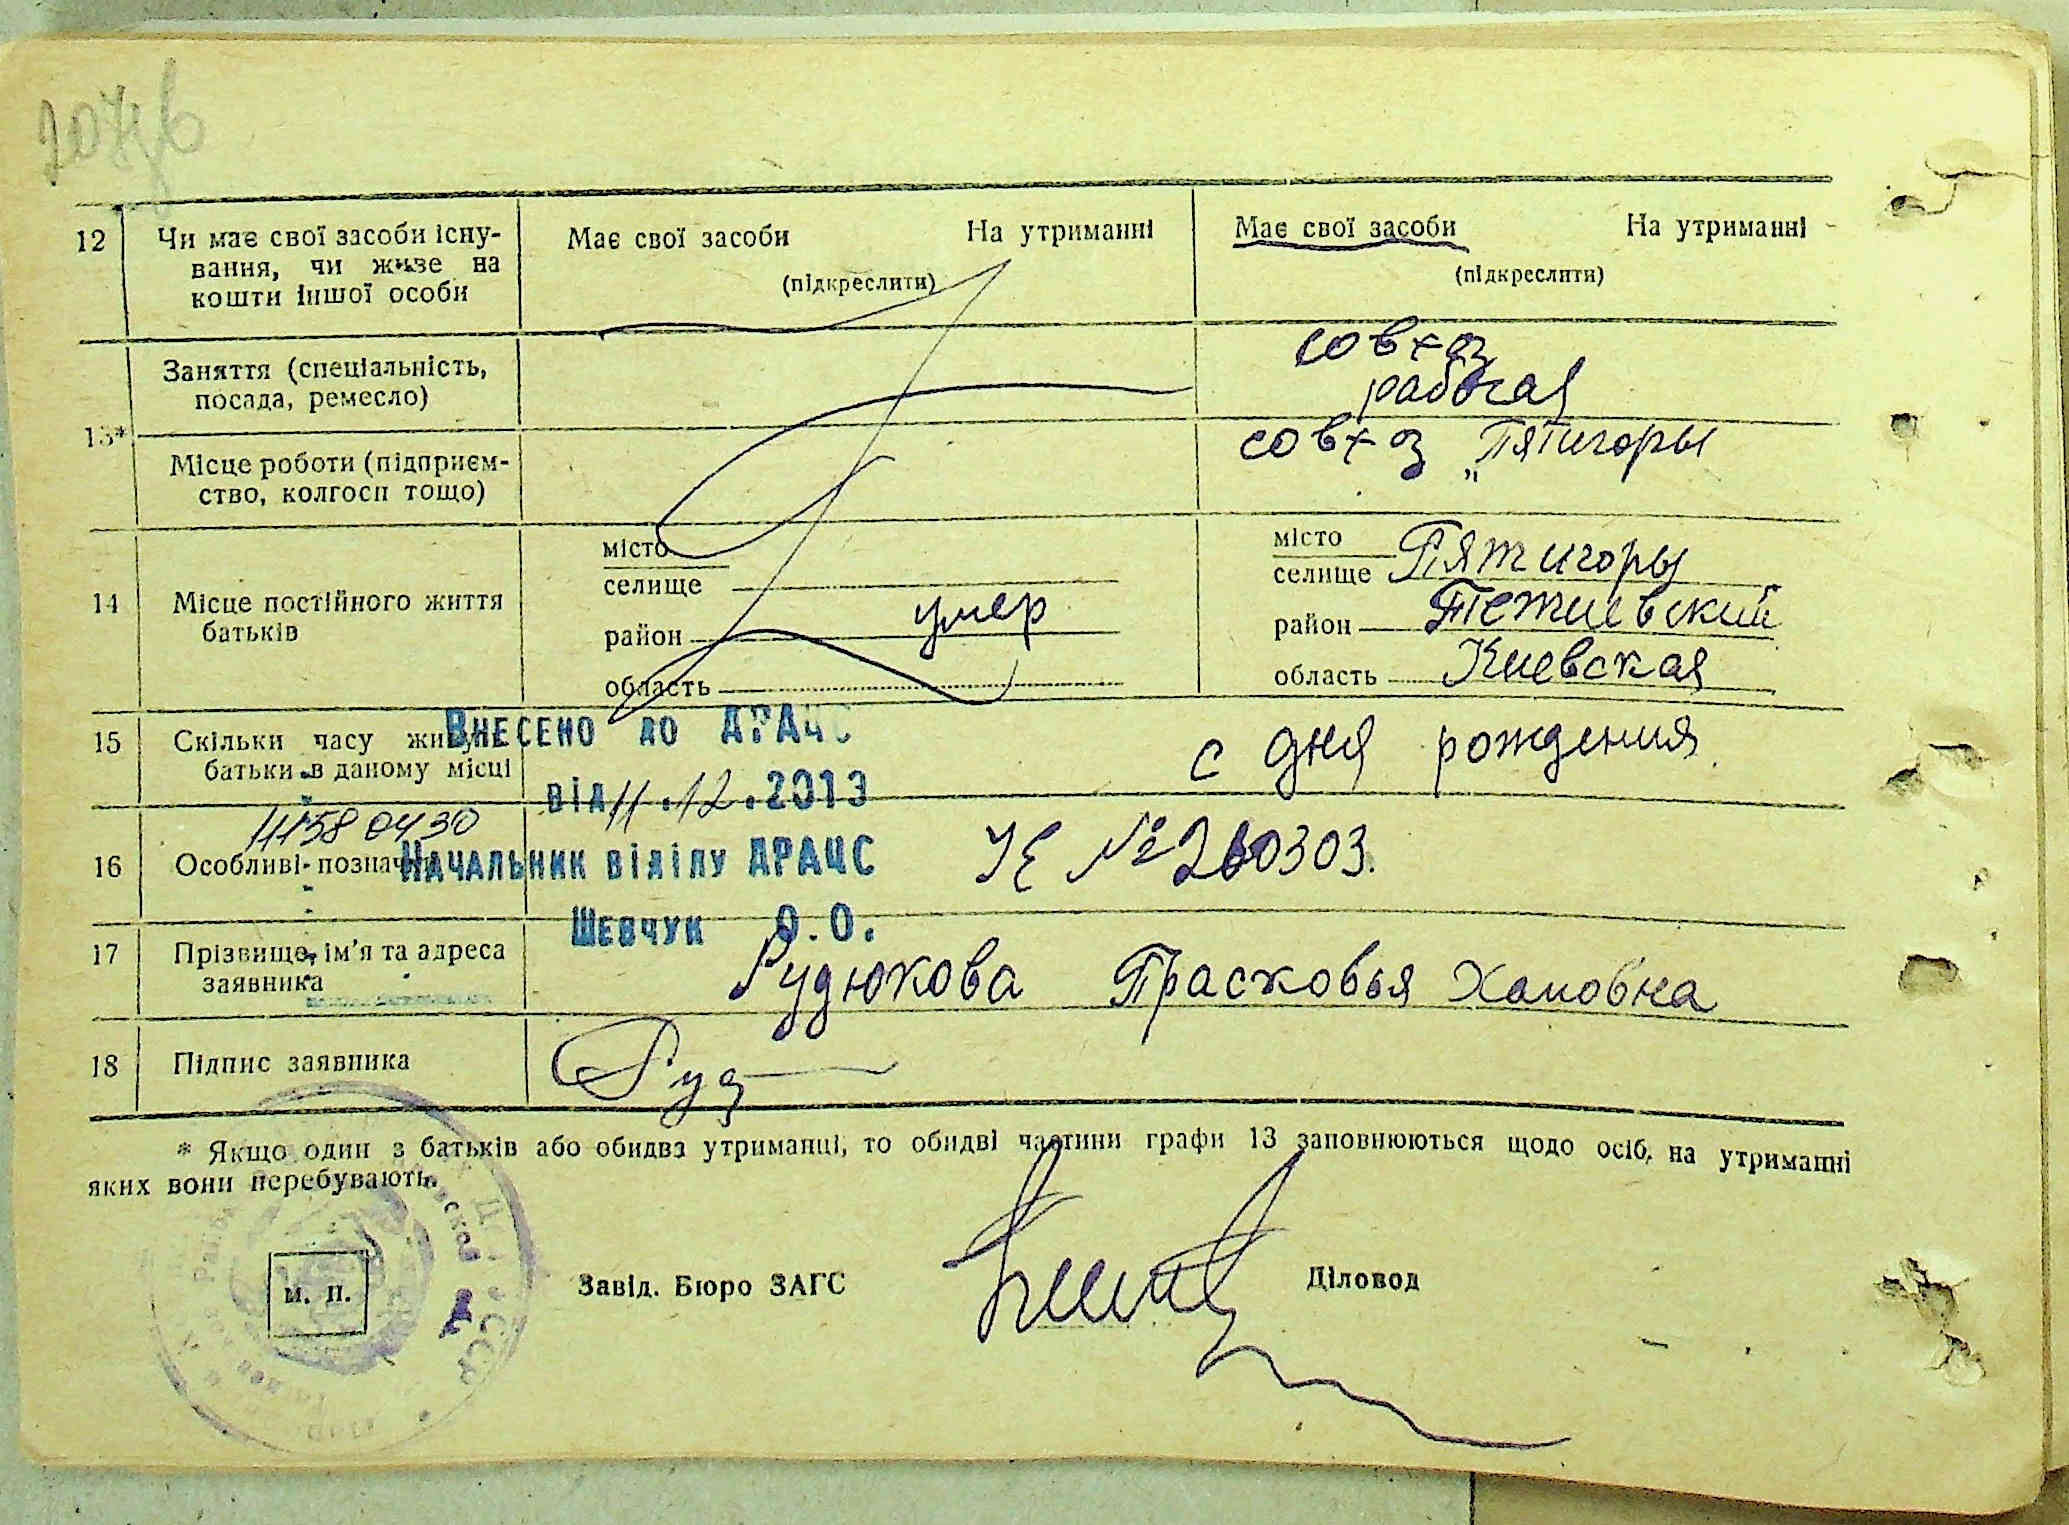 12 Чи має свої засоби існу-
вання, чи живе на
кошти іншої особи
Має свої засоби На утриманні
(підкреслити)
Має свої засоби На утриманні
(підкреслити)
13*
Заняття (спеціальність,
посада, ремесло)
совхоз
рабочая
Місце роботи (підприєм-
ство, колгосп тощо)
совхоз „Пятигоры
14 Місце постійного життя
батьків
місто
селище
район умер
область
місто
селище Пятигоры
район Тетиевский
область Киевская
15 Скільки часу живуть
батьки в даному місці
с дня рождения
Внесено до ДРАЦС
від 11.12.2013
1158 0430
Начальник відділу ДРАЦС
Шевчук О.О.
16 Особливі позначки
УЕ № 260303.
17 Прізвище, ім'я та адреса
заявника
Рудюкова Прасковья Хамовна
18 Підпис заявника
Руд
* Якщо один з батьків або обидва утриманці, то обидві частини графи 13 заповнюються щодо осіб, на утриманні
яких вони перебувають.
м. п.
Завід. Бюро ЗАГС
Діловод